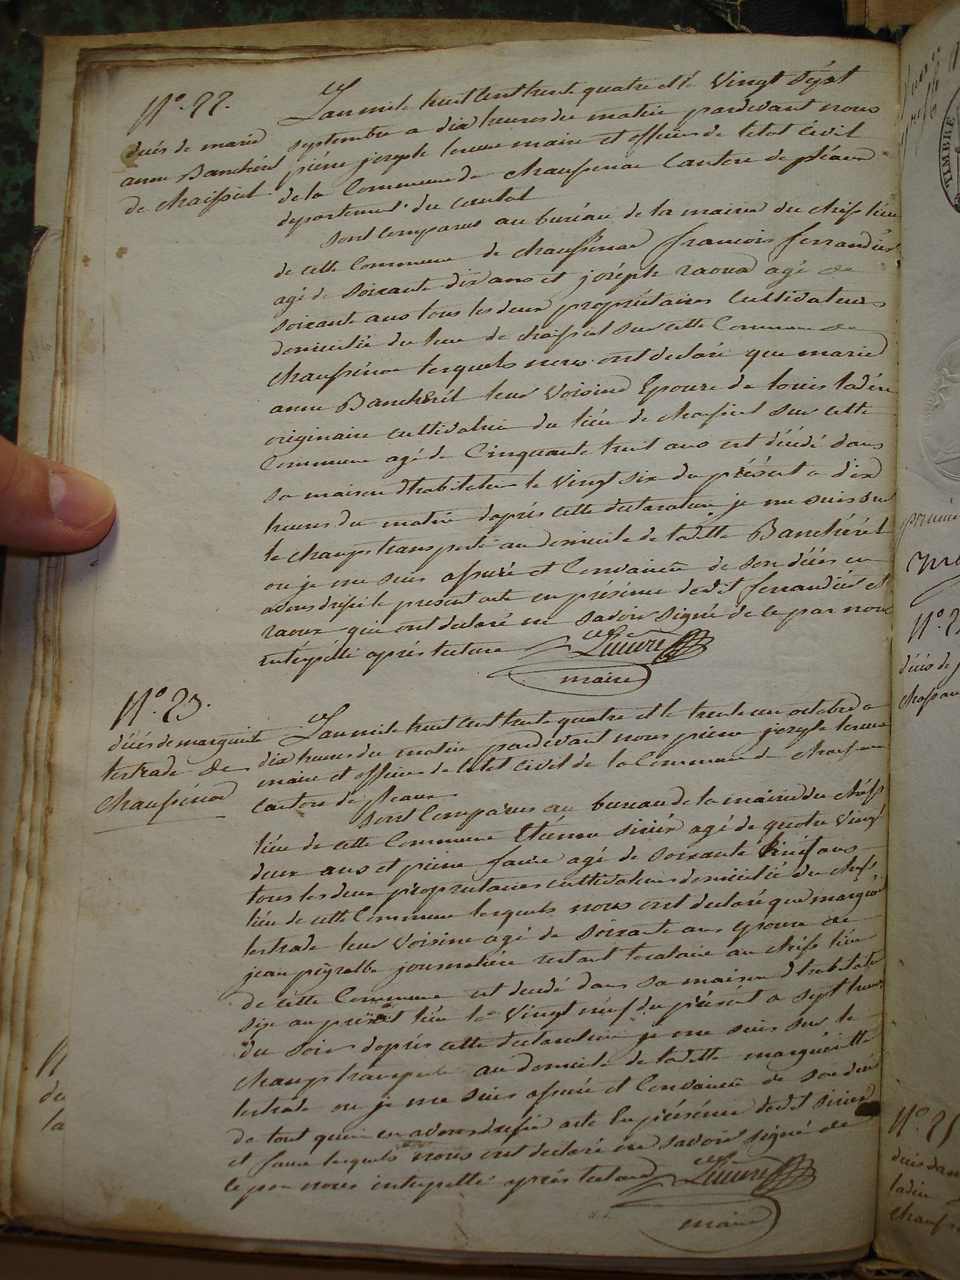 N.° 22.
décés de marie
anne Bancherel
de chaissiel
L'an mil huit cent trente quatre et le vingt sept
septembre a dix heures du matin pardevant nous
piérre joseph maire et officier de letat civil
de la Commune de chaussenac Canton de pléaux
departement du cantal
sont comparus au buréau de la mairie du chéf lieu
de cette Commune de chaussénac francois ferrandiés
agé de soixante dix ans et joséph raoux agé de
soixante ans tous les deux propriétaires Cultivateurs
domicilié du lieu de chaissiel sur cette Commune de
chaussénac lesquels nous ont declaré que marie
anne Bancherel leur voisine Epouze de louis ladén
originaire cultivatrice du lieu de chaissiel sur cette
Commune agé de Cinquante huit ans est décédé dans
sa maison d'habitation le vingt six du présent a dix
heures du matin daprés cette declaration je me suis sur
le champ transporté au domicile de ladite Banchérel
ou je me suis assuré et Convaincu de son décés en
avons dréssé le present acte en présénce desd.t ferrandiés et
raoux qui ont declaré ne savoir signé de ce par nous
intérpéllé aprés lecture
maire
N.° 23.
décés de marguerite
lestrade de
chaussénac
L'an mil huit cent trente quatre et le trente un octobre a
dix heures du matin pardevant nous piérre joseph
maire et officier de letat civil de la Commune de chaussénac
canton de pleaux
sont Comparus au bureau de la mairie du chéf
lieu de cette Commune Etiénne siriés agé de quatre vingt
deux ans et piérre faure agé de soixante huit ans
tous les deux propriétaires cultivateurs domicilié du chef
lieu de cette Commune lesquels nous ont declaré que margueritte
lestrade leur voisine agé de soixante ans epouze de
jean peyralbe journaliére restant locataire au chéf lieu
de cette Commune est décédé dans sa maison d'habitation
size au présent lieu le vingt néuf du présent a sept heures
du soir daprés cette declaration je me suis sur le
champ transporté au domicile de ladite margueritte
lestrade ou je me suis assuré et Convaincu de son décés
de tout quoi en avons dréssé acte En présénce desd.t siriés
et faure lesquels nous ont declaré ne savoir signé de
ce par nous intérpéllé aprés lecture
maire
TIMBRE